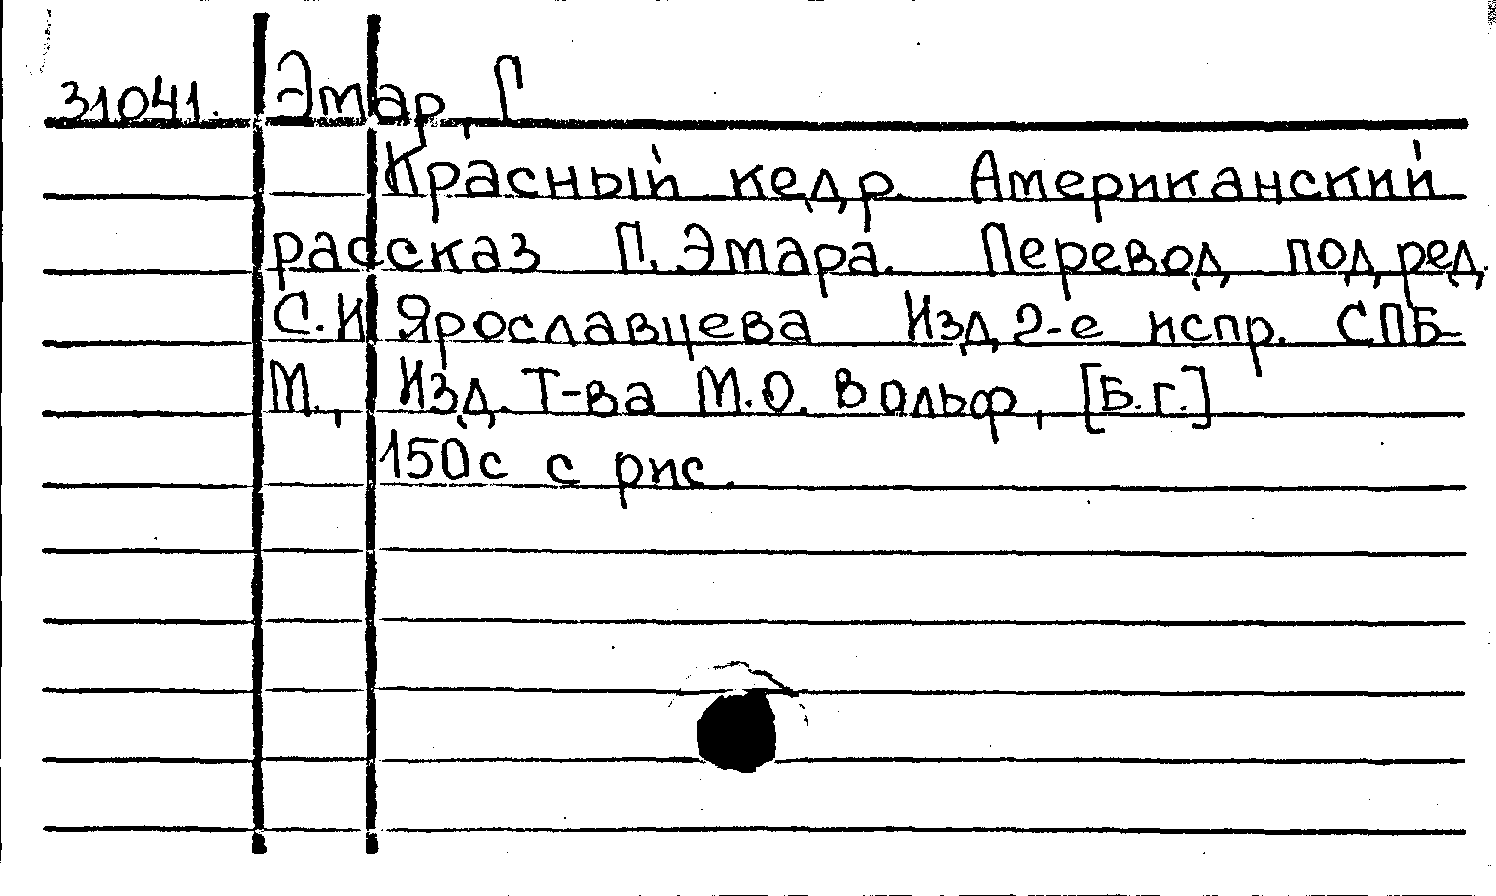 31041. Эмар, Г
Красный кедр. Американский
рассказ Г. Эмара. Перевод под ред.
С.И Ярославцева Изд 2-е испр. СПБ-
М., Изд. Т-ва М.О. Вольф, [Б.г.]
150с с рис.